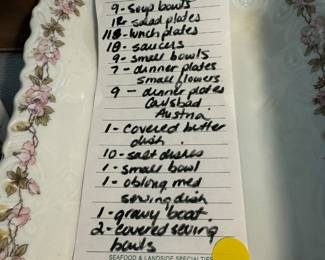 9 - soup bowls
12 - salad plates
11 - lunch plates
18 - saucers
9 - small bowls
7 - dinner plates
small flowers
9 - dinner plates
Carlsbad
Austria
1 - covered butter
dish
10 - salt dishes
1 - small bowl
1 - oblong med
serving dish
1 - gravy boat
2 - covered serving
bowls
SEAFOOD & LANDSIDE SPECIALTIES